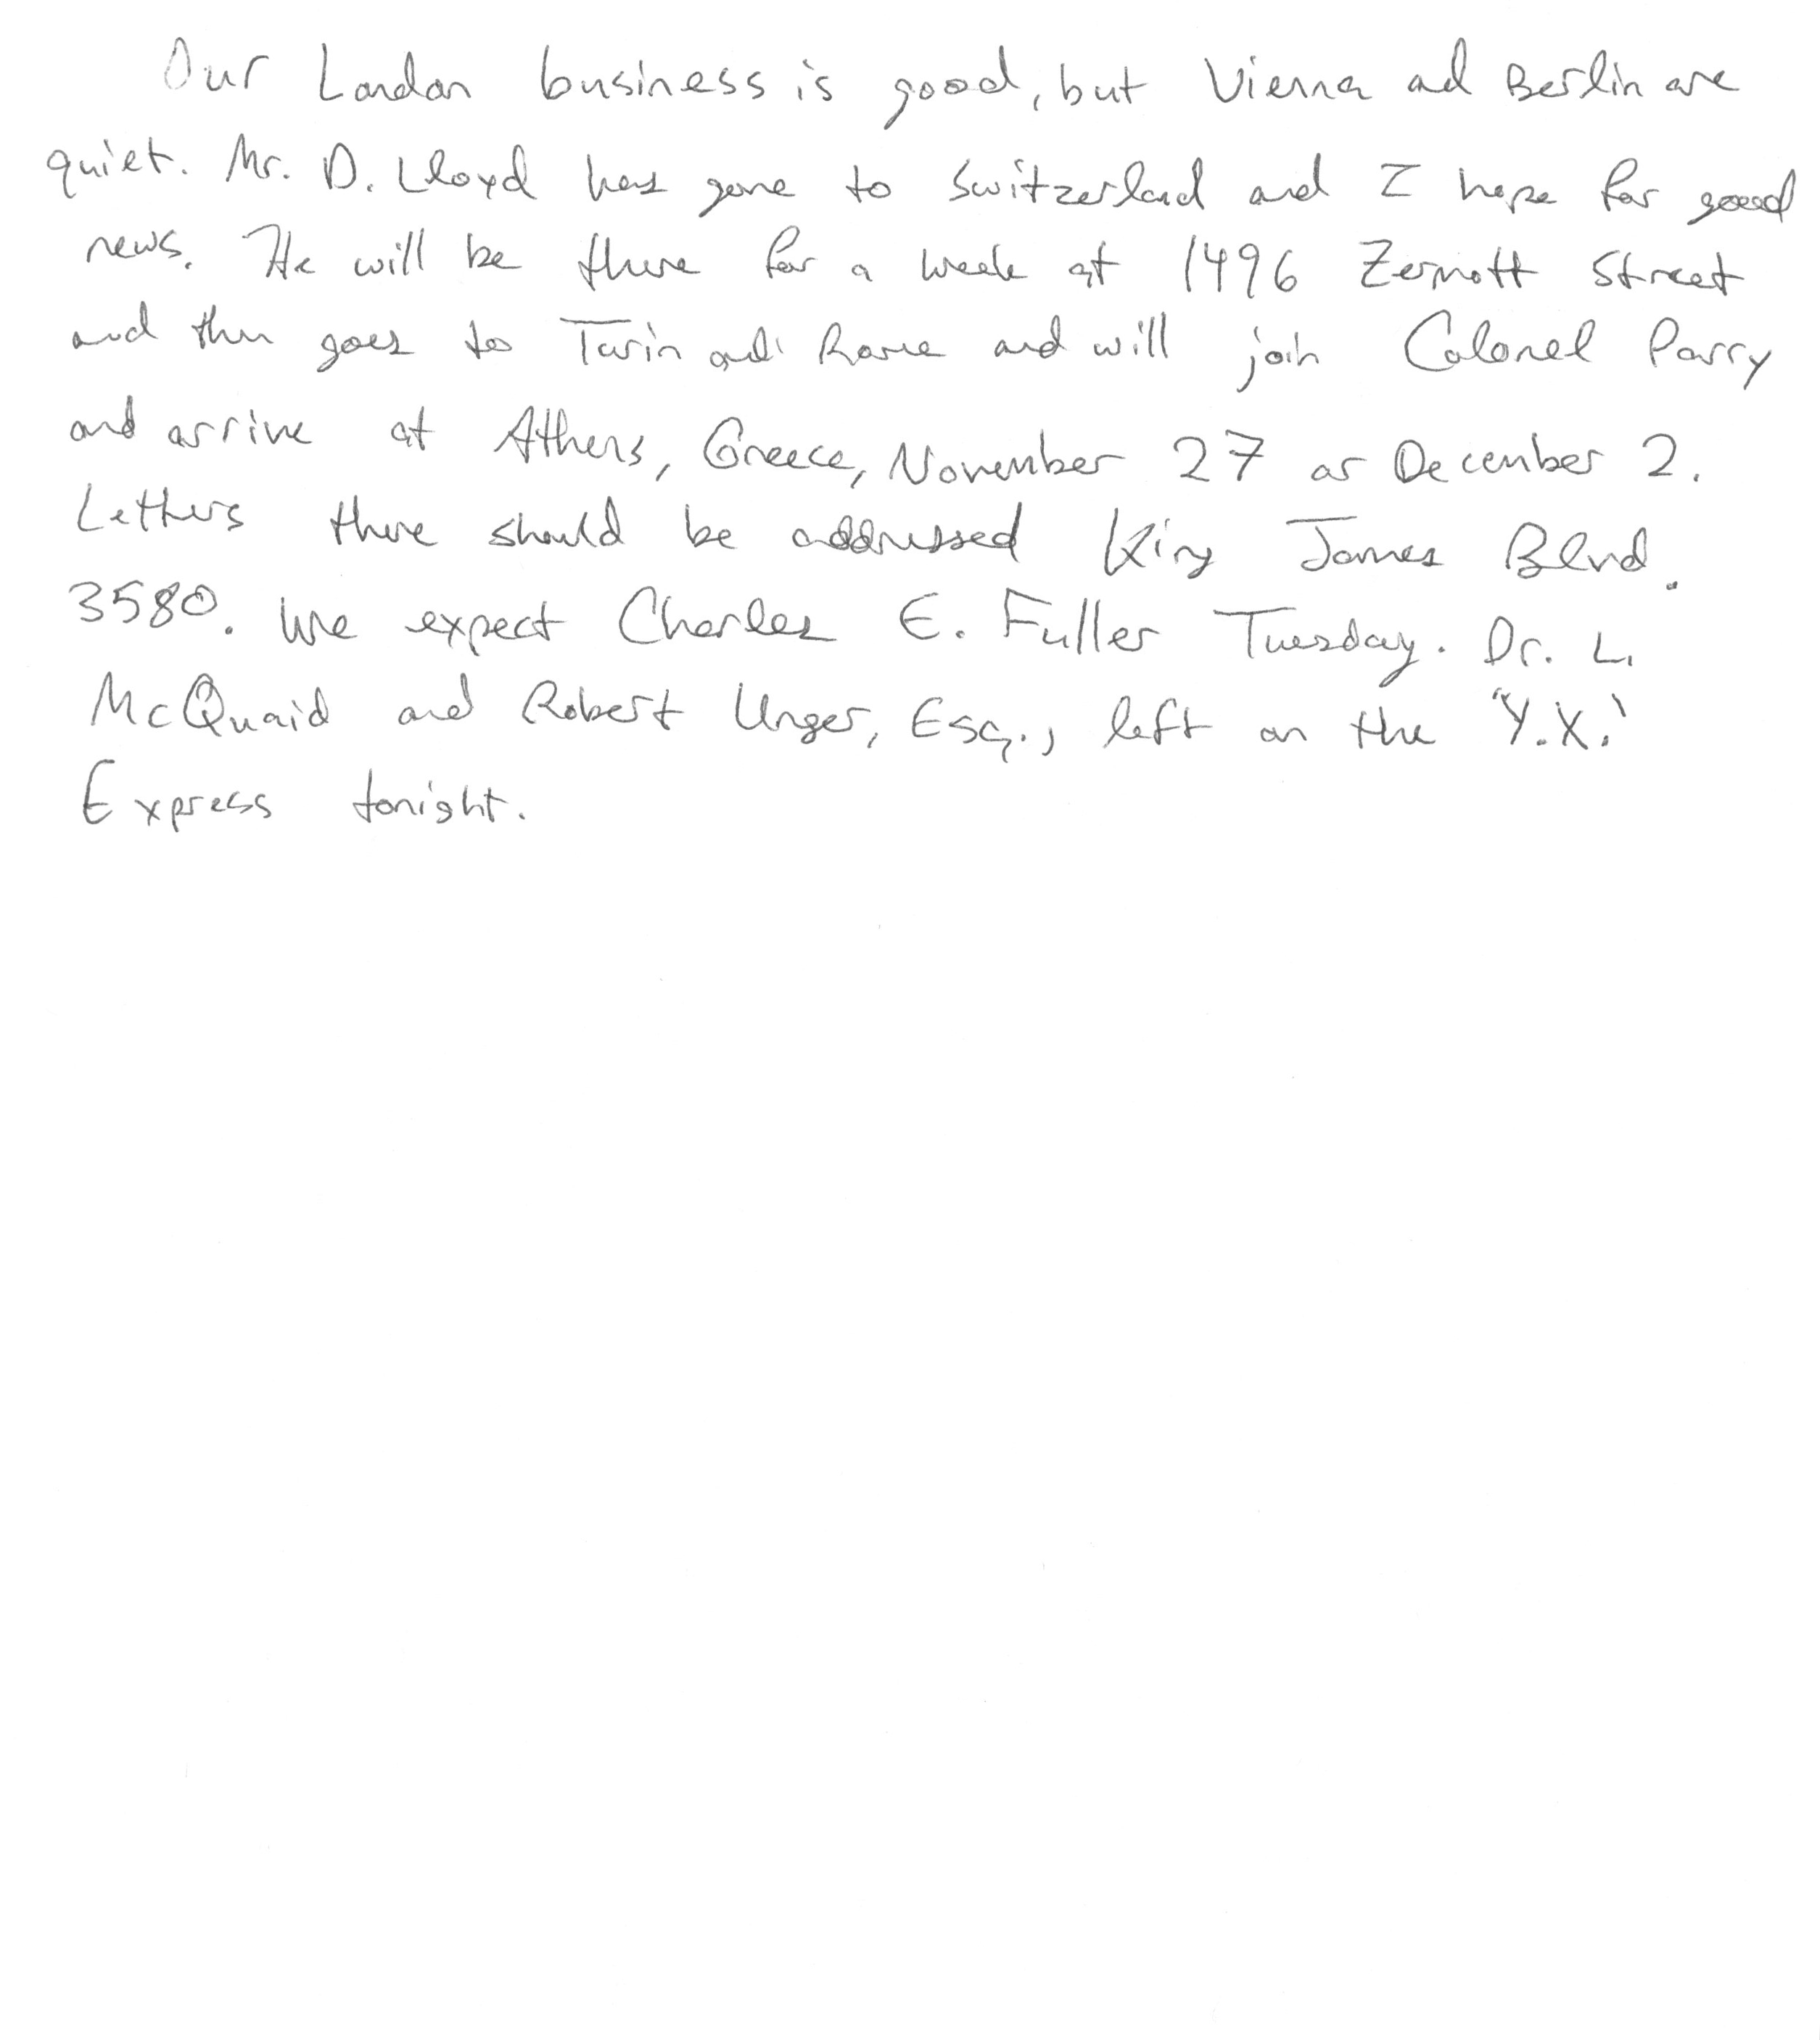 Our London business is good, but Vienna and Berlin are
quiet. Mr. D. Lloyd has gone to Switzerland and I hope for good
news. He will be there for a week at 1496 Zermott Street
and then goes to Turin and Rome and will join Colonel Parry
and arrive at Athens, Greece, November 27 or December 2.
Letters there should be addressed King James Blvd.
3580. We expect Charles E. Fuller Tuesday. Dr. L.
McQuaid and Robert Unger, Esq., left on the "Y.X."
Express tonight.